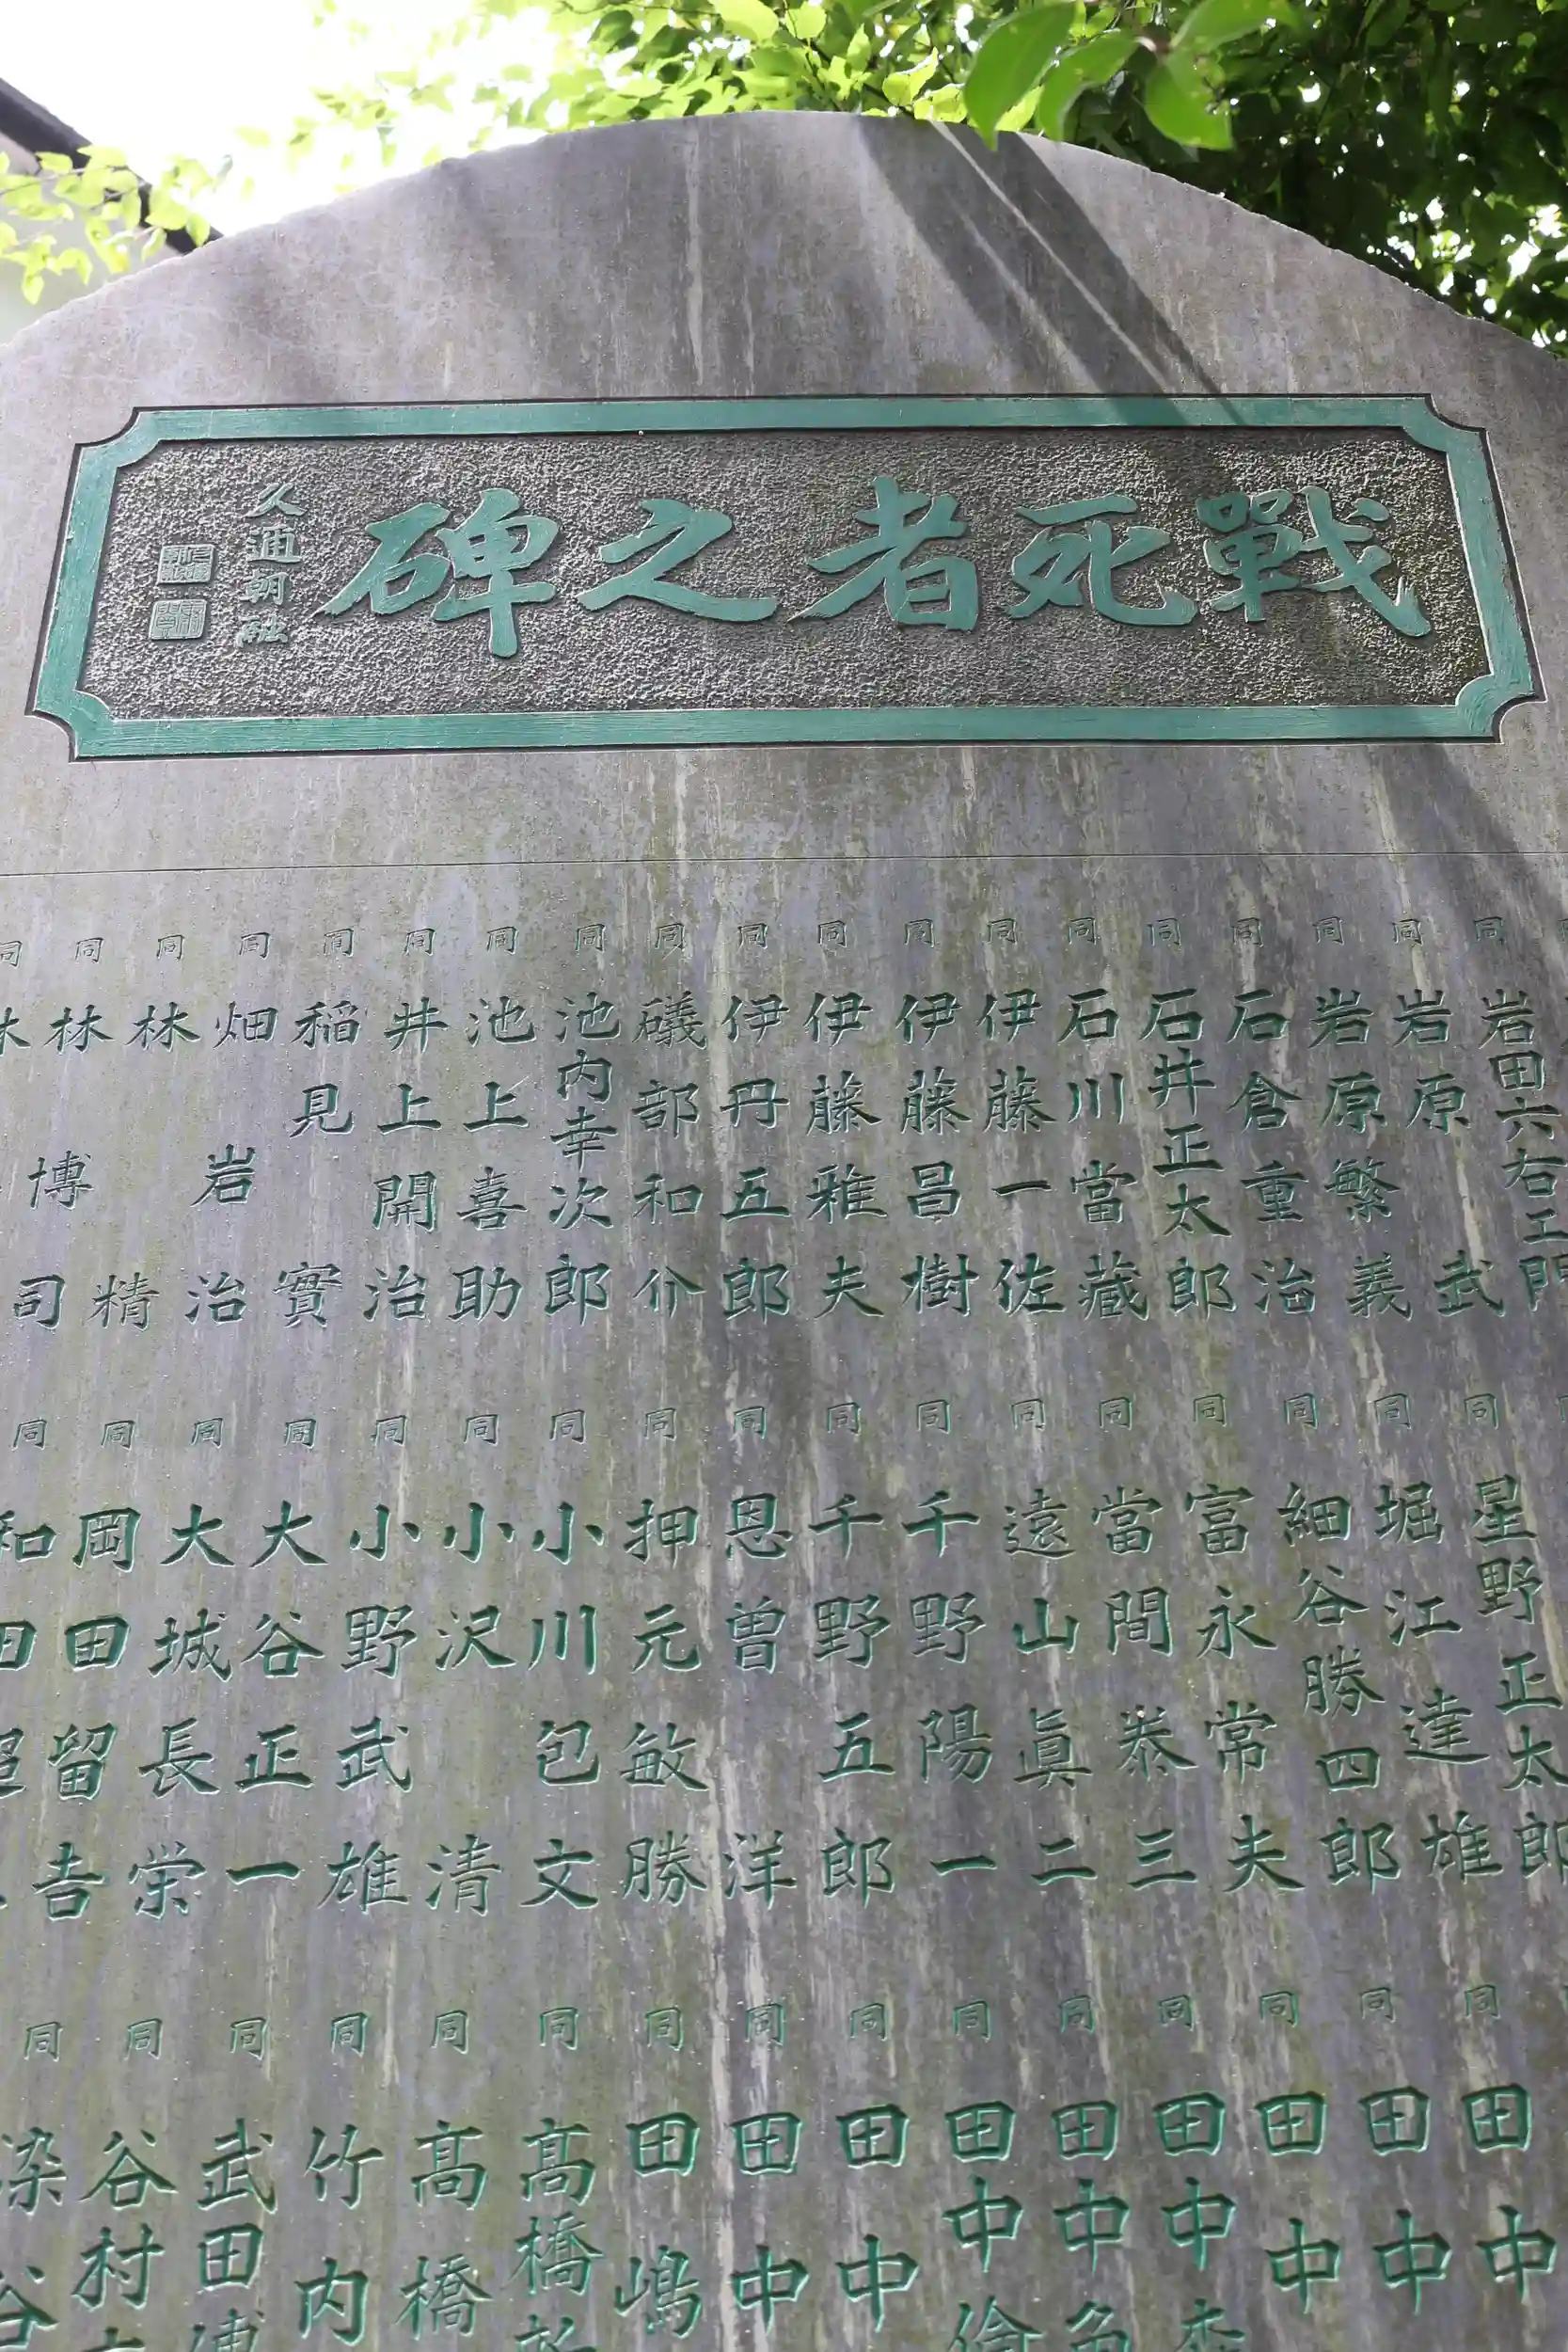 戰死者之碑
久邇朝融
同 岩田六右エ門
同 岩原武
同 岩原繁義
同 石倉重治
同 石井正太郎
同 石川當藏
同 伊藤一佐
同 伊藤昌樹
同 伊藤雅夫
同 伊丹五郎
同 礒部和介
同 池内幸次郎
同 池上喜助
同 井上開治
同 稲見實
同 畑岩治
同 林精
同 林博司
同 星野正太郎
同 堀江達雄
同 細谷勝四郎
同 富永常夫
同 當間泰三
同 遠山眞二
同 千野陽一
同 千野五郎
同 恩曽洋
同 押元敏勝
同 小川包文
同 小沢清
同 小野武雄
同 大谷正一
同 大城長栄
同 岡田留吉
和田
同 田中
同 田中
同 田中
同 田中
同 田中
同 田中
同 田中
同 田中
同 田嶋
同 高橋
同 高橋
同 竹内
同 武田
同 谷村
同 染谷